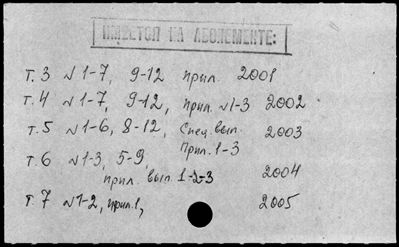 ИМЕЕТСЯ НА АБОНЕМЕНТЕ:
Т. 3 № 1-7, 9-12 Прил. 2001
Т. 4 № 1-7, 9-12, Прил. №1-3 2002
Т. 5 № 1-6, 8-12, Спец. вып. 2003
Прил. 1-3
Т. 6 № 1-3, 5-9,
Прил. вып. 1-2-3 2004
Т. 7 № 1-2, прил. 1, 2005